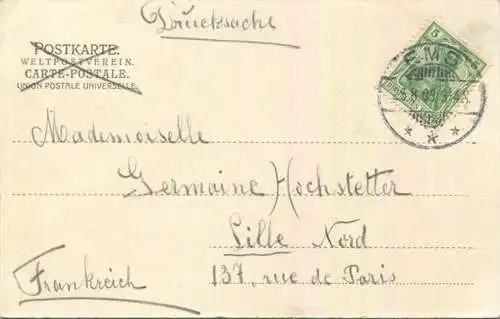 Drucksache
POSTKARTE.
WELTPOSTVEREIN.
CARTE-POSTALE.
UNION POSTALE UNIVERSELLE.
5
EMS
Mademoiselle
Germaine Hochstetter
Lille Nord
137, rue de Paris
Frankreich